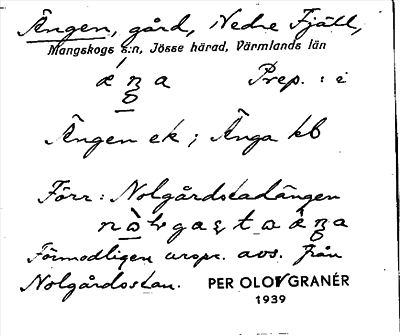 Ängen, gård, Nedre Fjäll,
Mangskogs s:n, Jösse härad, Värmlands län
Prep. : i
Ängen ek ; Änga kb
Förr : Nolgårdsstadängen
Förmodligen urspr. avs. från
Nolgårdsstan.
PER OLOV GRANÉR
1939